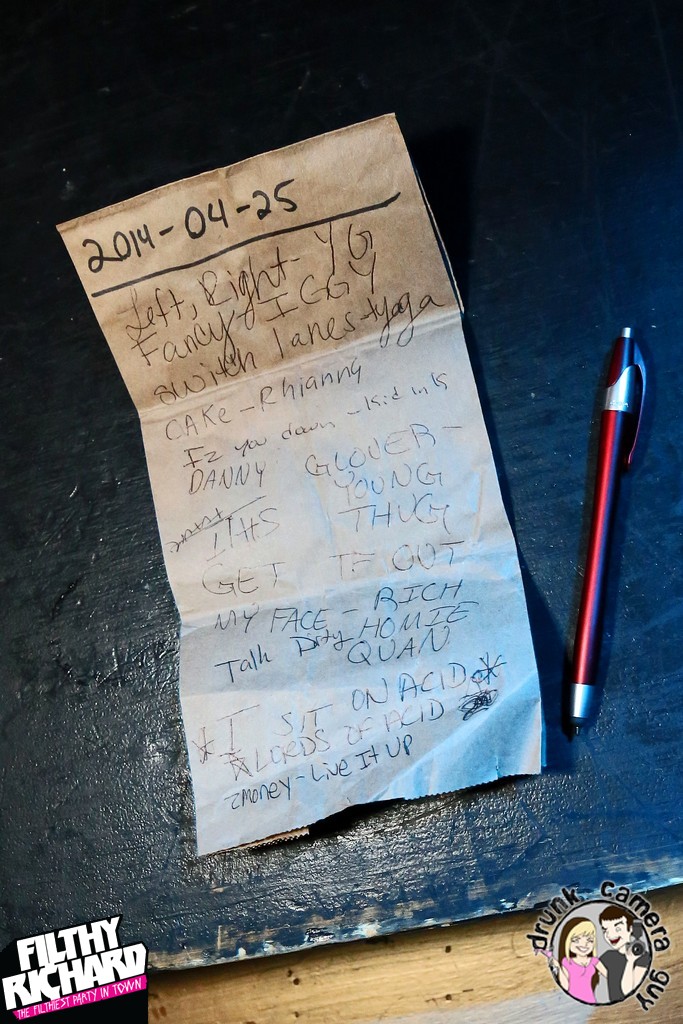 2014-04-25
Left, Right - YG
Fancy IGGY
Switch lanes - tyga
CAKE - Rhianny
Iz you down - Kid inK
DANNY GLOVER -
YOUNG
THUG
GET TF OUT
MY FACE - RICH
HOMIE
QUAN
Talk Dirty
*I SIT ON ACID*
*LORDS OF ACID
2MONEY - LIVE IT UP
FILTHY
RICHARD
THE FILTHIEST PARTY IN TOWN
drunk camera guy